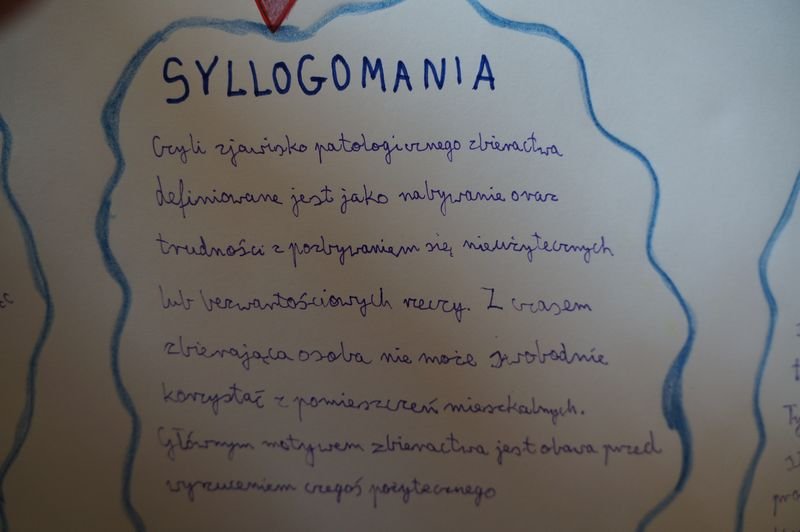 SYLLOGOMANIA
Czyli zjawisko patologicznego zbieractwa
definiowane jest jako nabywanie oraz
trudności z pozbywaniem się nieużytecznych
lub bezwartościowych rzeczy. Z czasem
zbierająca osoba nie może swobodnie
korzystać z pomieszczeń mieszkalnych.
Głównym motywem zbieractwa jest obawa przed
wyrzuceniem czegoś pożytecznego